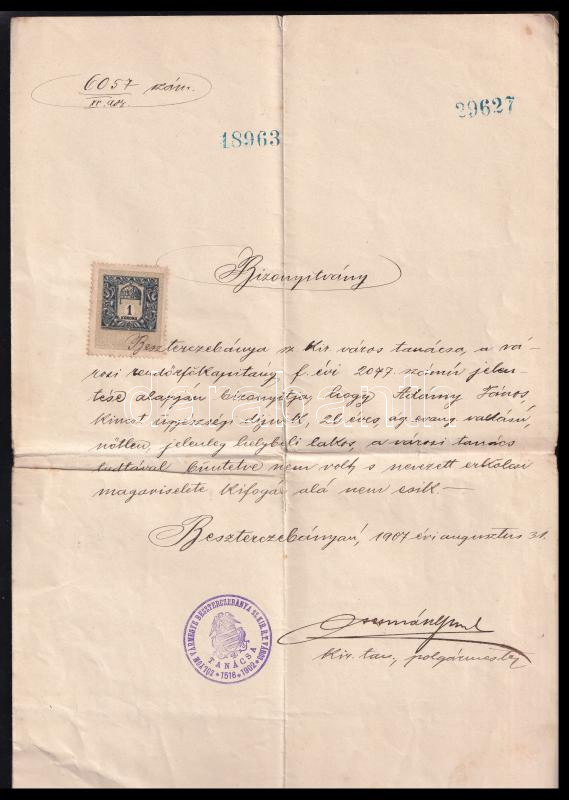 6057 szám.
18963
29627
Bizonyitvány
1
KORONA
Beszterczebánya sz. kir. város tanácsa, a vá-
rosi rendőrfőkapitány f. évi 2047. számú jelen-
tése alapján bizonyitja, hogy Adámy János
kincst. ügyészségi dijnok, 26 éves ág. evang. vallású,
nőtlen, jelenleg helybeli lakos, a városi tanács
tudtával büntetve nem volt, s nevezett erkölcsi
magaviselete kifogás alá nem esik. —
Beszterczebányán, 1907 évi augusztus 31.
kir. tan., polgármester
ZÓLYOM VÁRMEGYE BESZTERCZEBÁNYA SZ. KIR. R.T. VÁROS
TANÁCSA
1516 * 1902
darabanth